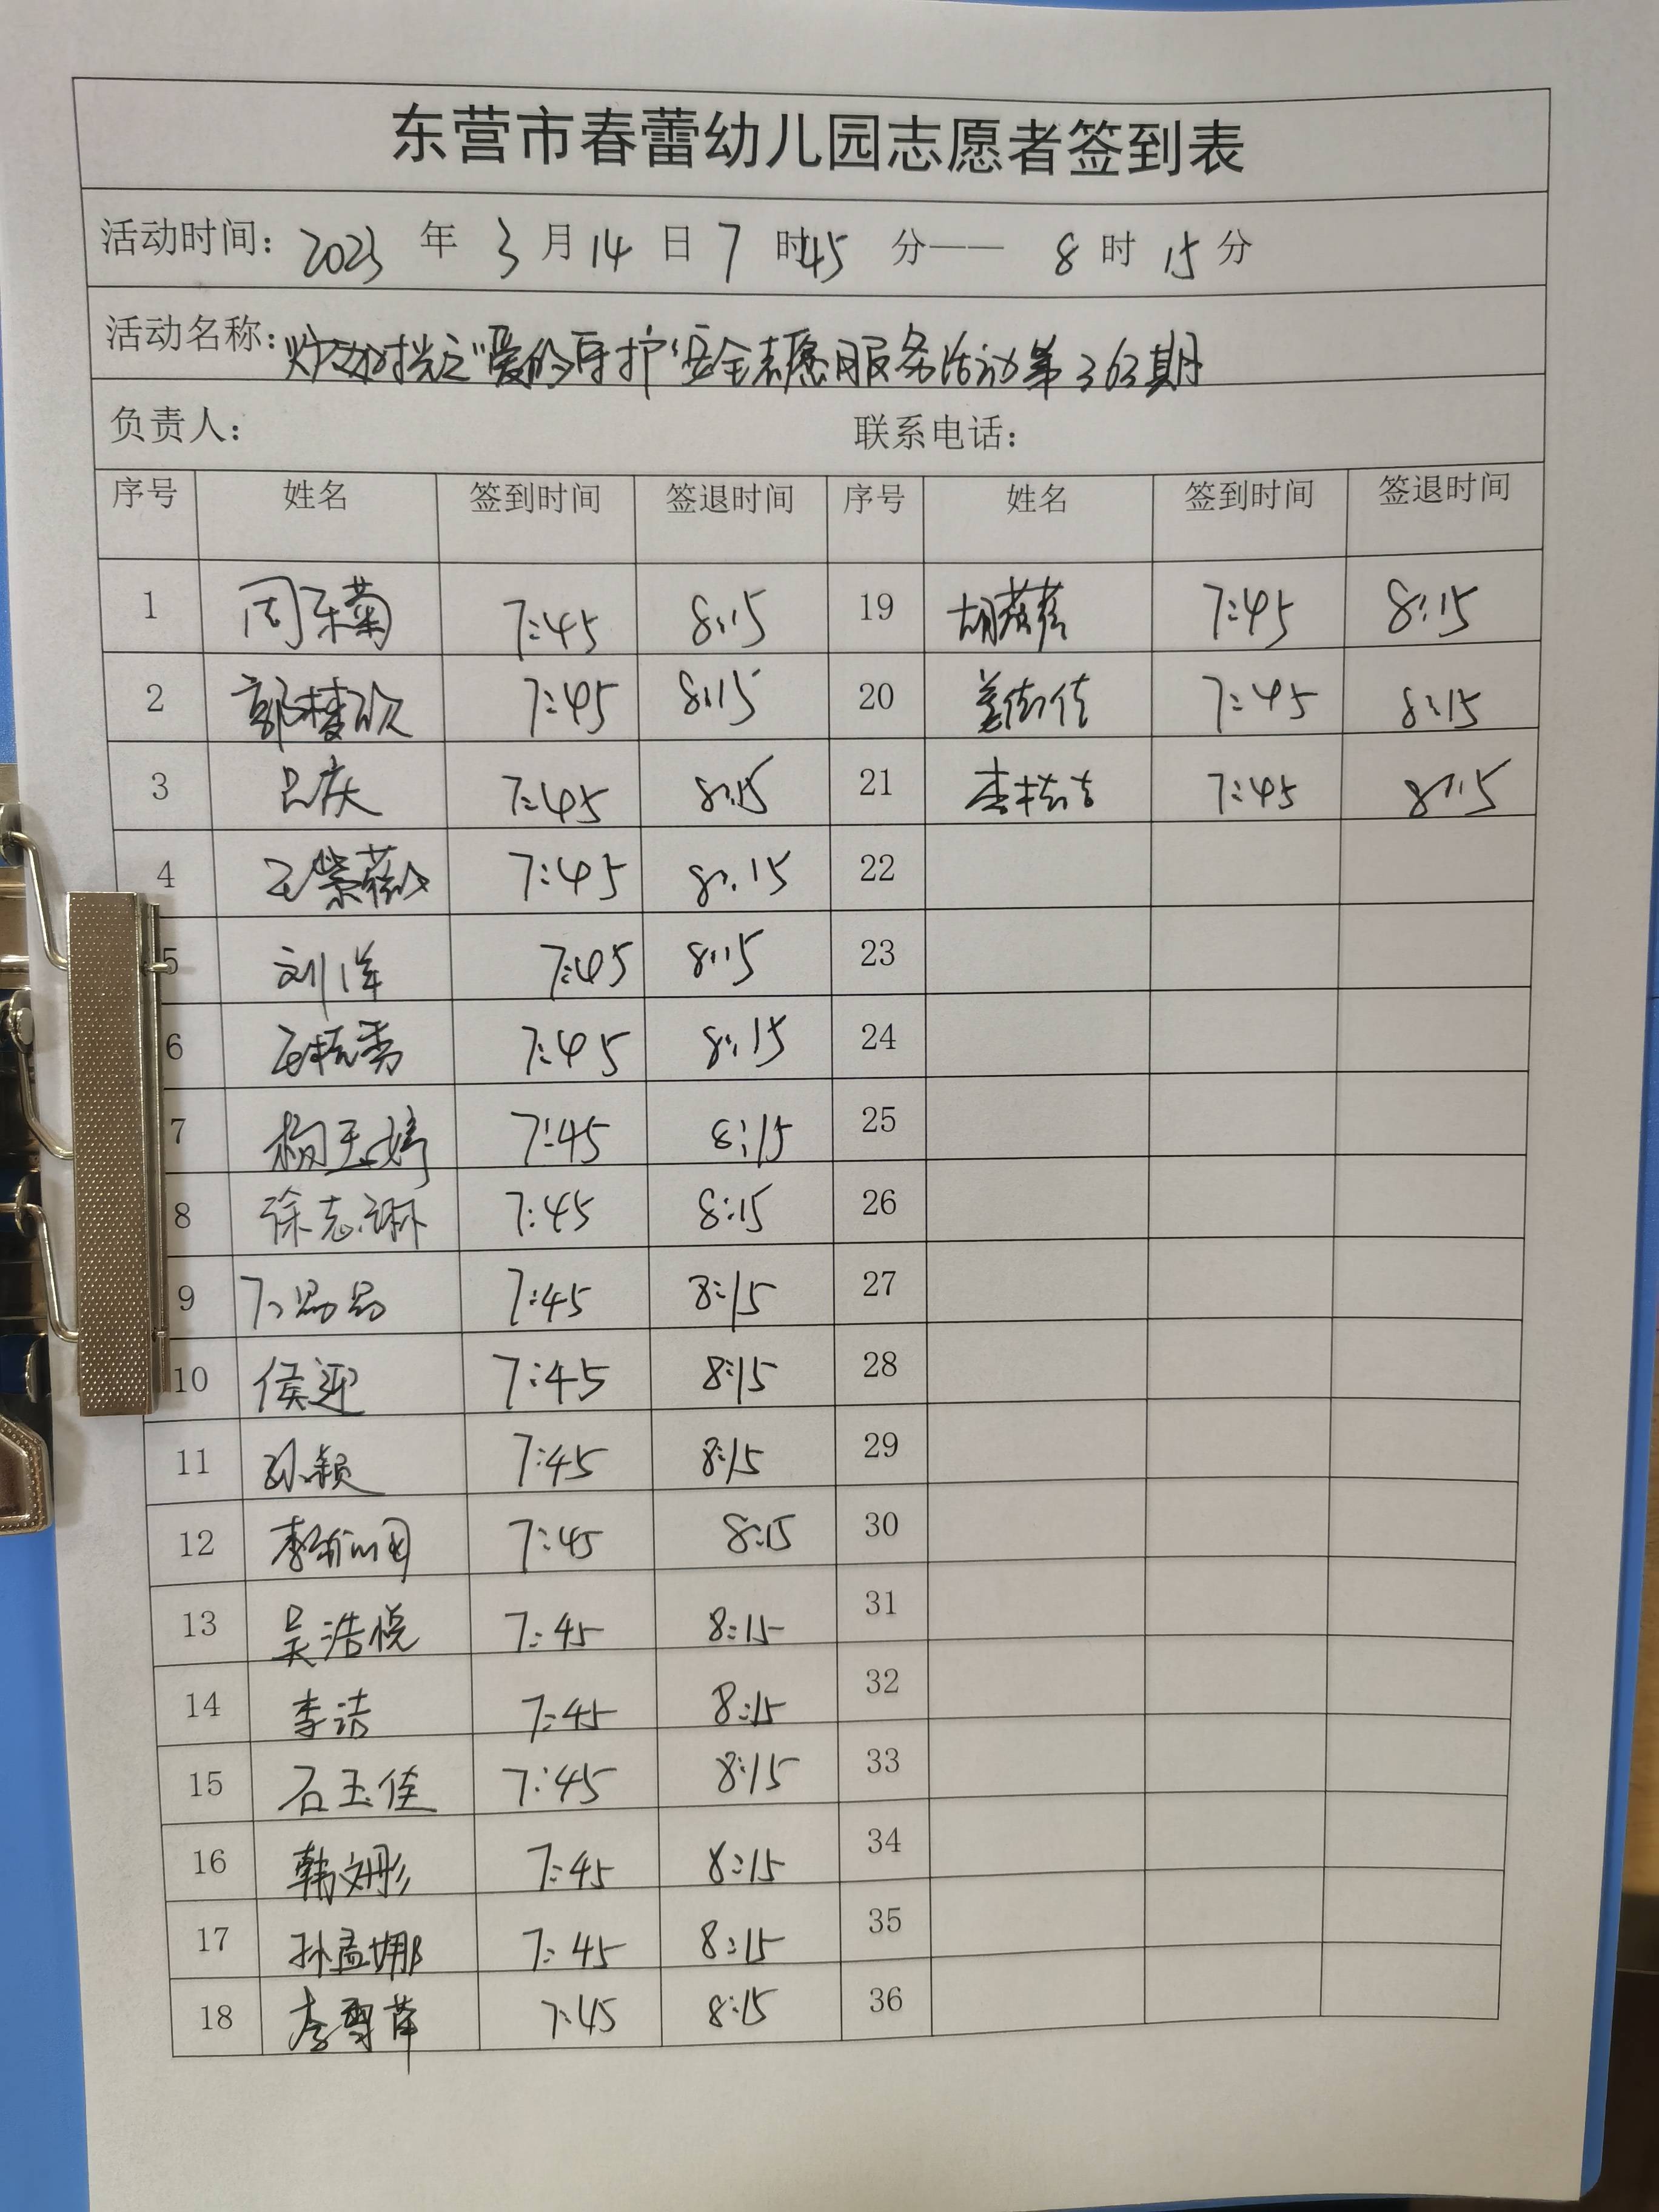 东营市春蕾幼儿园志愿者签到表
活动时间: 2023 年 3 月 14 日 7 时 45 分—— 8 时 15 分
活动名称: 时光之"爱的守护"安全志愿服务活动第363期
负责人: 联系电话:
序号 姓名 签到时间 签退时间 序号 姓名 签到时间 签退时间
1 周东菊 7:45 8:15 19 胡 7:45 8:15
2 郭 7:45 8:15 20 姜 7:45 8:15
3 吕庆 7:45 8:15 21 李 7:45 8:15
4 王紫薇 7:45 8:15 22
5 刘洋 7:45 8:15 23
6 7:45 8:15 24
7 杨玉婷 7:45 8:15 25
8 徐志琳 7:45 8:15 26
9 7:45 8:15 27
10 侯迎 7:45 8:15 28
11 孙颖 7:45 8:15 29
12 李 7:45 8:15 30
13 吴浩悦 7:45 8:15 31
14 李洁 7:45 8:15 32
15 石玉佳 7:45 8:15 33
16 韩姗彤 7:45 8:15 34
17 孙孟娜 7:45 8:15 35
18 李雪萍 7:45 8:15 36